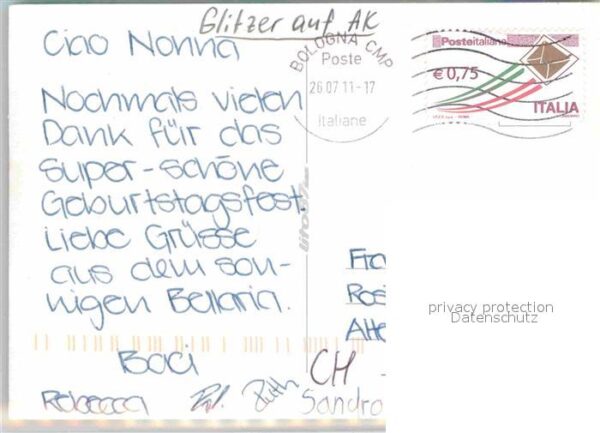 Glitzer auf AK
Ciao Nonna
Nochmals vielen
Dank für das
super-schöne
Geburtstagsfest.
Liebe Grüsse
aus dem son-
nigen Bellaria.
Baci
Rebecca
Ruth
Sandro
CH
BOLOGNA CMP
Poste
26.07.11-17
italiane
Posteitaliane
€ 0,75
ITALIA
Fra
Ros
Alte
privacy protection
Datenschutz